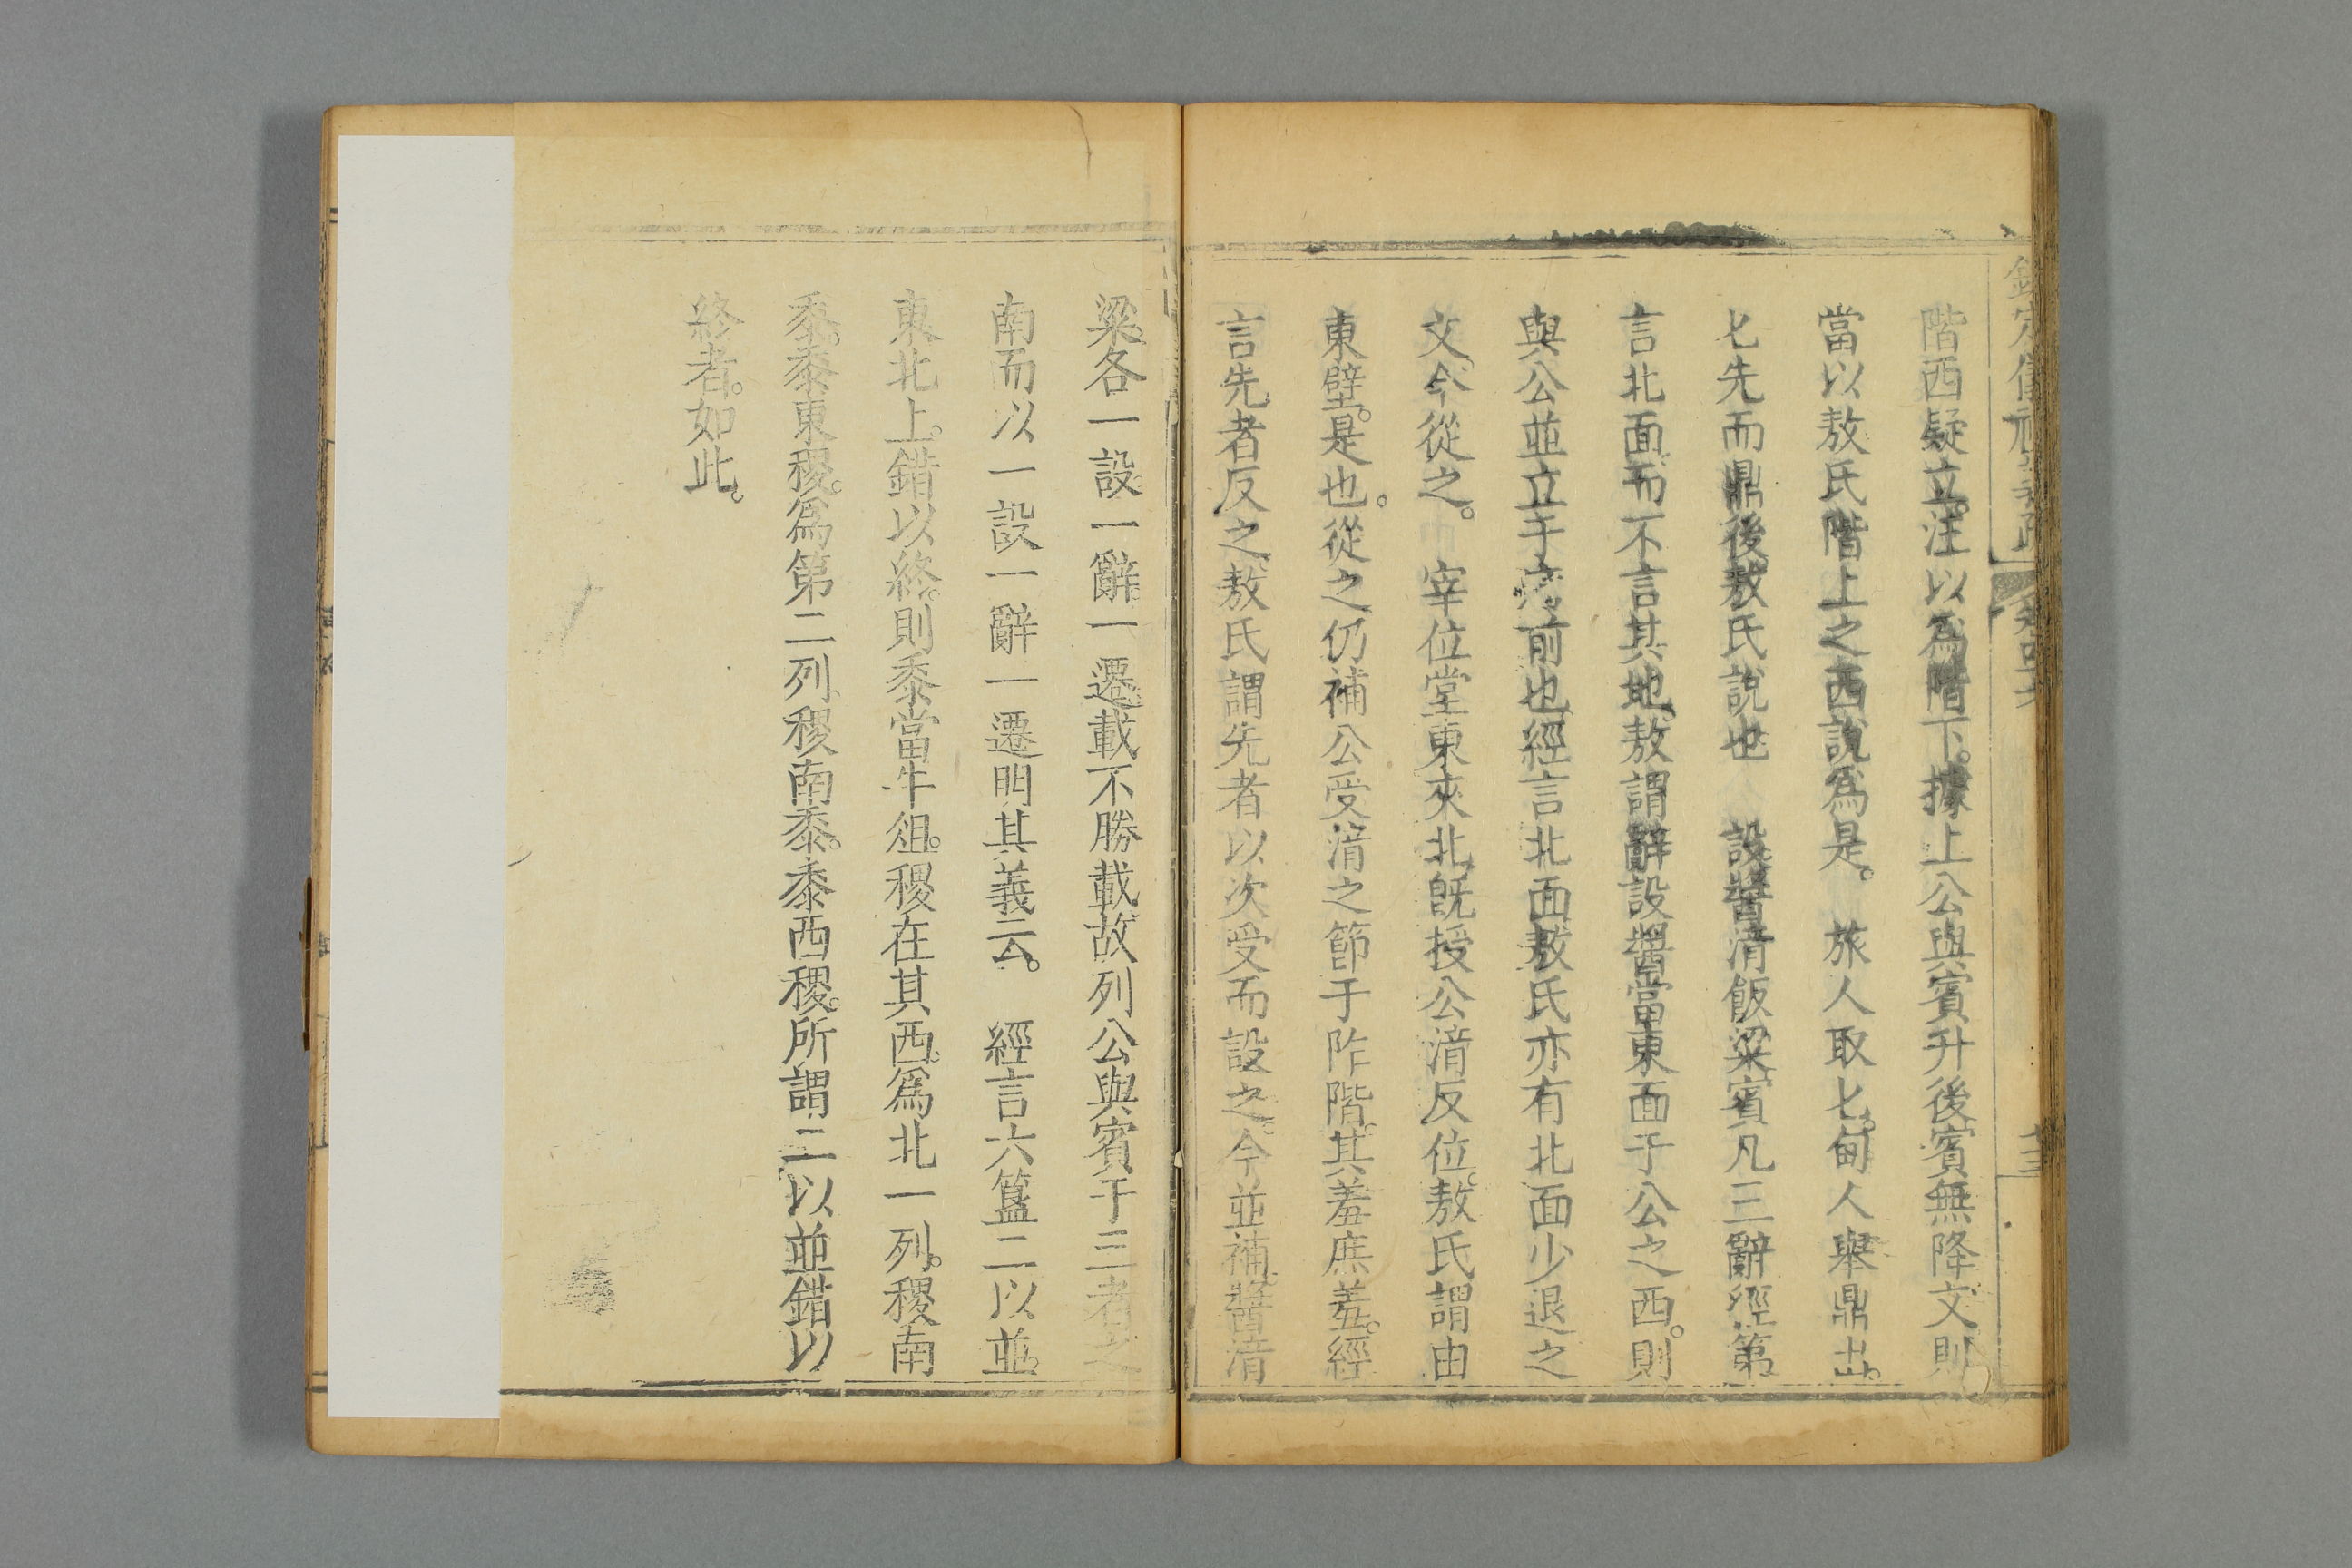 欽定儀禮義疏 卷四十六 十三
階西疑立。注以爲階下。據上公與賓升後賓無降文則
當以敖氏階上之西說爲是。 旅人取匕。甸人舉鼎出。
匕先而鼎後敖氏說也 設醬湆飯粱賓凡三辭經第
言北面而不言其地敖謂辭設醬當東面于公之西。則
與公並立于席前也經言北面敖氏亦有北面少退之
文今從之。 宰位堂東夾北既授公湆反位敖氏謂由
東壁。是也。從之仍補公受湆之節于阼階。其羞庶羞。經
言先者反之敖氏謂先者以次受而設之。今並補。醬湆
粱各一設。一辭。一遷。載不勝載故列公與賓于三者之
南而以一設一辭一遷明其義云。 經言六簋二以並。
東北上。錯以終。則黍當牛俎。稷在其西。爲北一列。稷南
黍。黍東稷。爲第二列。稷南黍。黍西稷。所謂二以並錯以
終者。如此。